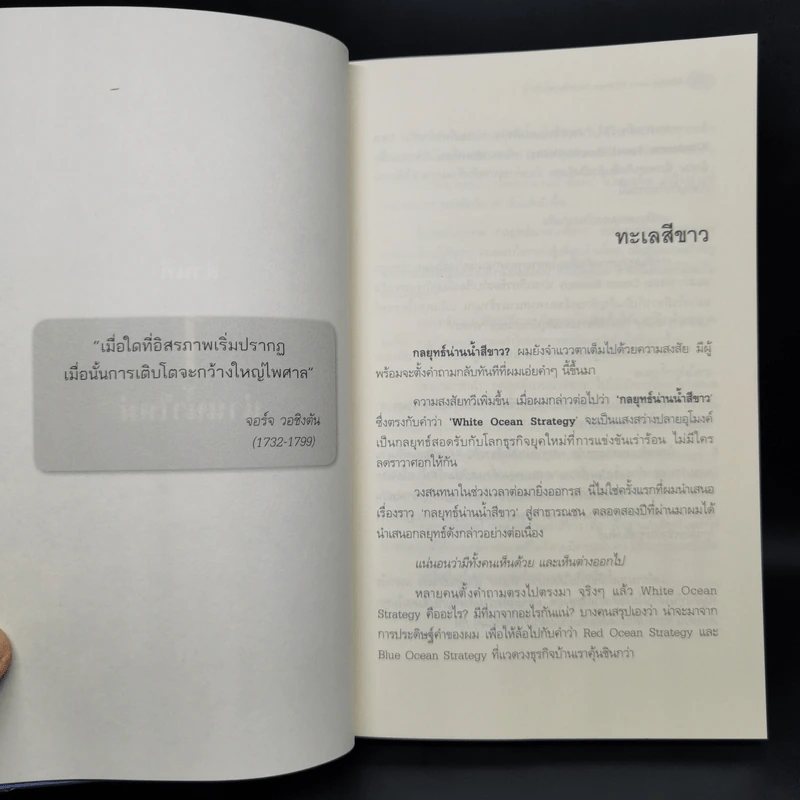 “เมื่อใดที่อิสรภาพเริ่มปรากฏ
เมื่อนั้นการเติบโตจะกว้างใหญ่ไพศาล”
จอร์จ วอชิงตัน
(1732-1799)
ทะเลสีขาว
กลยุทธ์น่านน้ำสีขาว? ผมยังจำแววตาเต็มไปด้วยความสงสัย มีผู้
พร้อมจะตั้งคำถามกลับทันทีที่ผมเอ่ยคำๆ นี้ขึ้นมา
ความสงสัยทวีเพิ่มขึ้น เมื่อผมกล่าวต่อไปว่า ‘กลยุทธ์น่านน้ำสีขาว’
ซึ่งตรงกับคำว่า ‘White Ocean Strategy’ จะเป็นแสงสว่างปลายอุโมงค์
เป็นกลยุทธ์สอดรับกับโลกธุรกิจยุคใหม่ที่การแข่งขันเร่าร้อน ไม่มีใคร
ลดราวาศอกให้กัน
วงสนทนาในช่วงเวลาต่อมายิ่งออกรส นี่ไม่ใช่ครั้งแรกที่ผมนำเสนอ
เรื่องราว ‘กลยุทธ์น่านน้ำสีขาว’ สู่สาธารณชน ตลอดสองปีที่ผ่านมาผมได้
นำเสนอกลยุทธ์ดังกล่าวอย่างต่อเนื่อง
แน่นอนว่ามีทั้งคนเห็นด้วย และเห็นต่างออกไป
หลายคนตั้งคำถามตรงไปตรงมา จริงๆ แล้ว White Ocean
Strategy คืออะไร? มีที่มาจากอะไรกันแน่? บางคนสรุปเองว่า น่าจะมาจาก
การประดิษฐ์คำของผม เพื่อให้ล้อไปกับคำว่า Red Ocean Strategy และ
Blue Ocean Strategy ที่แวดวงธุรกิจบ้านเราคุ้นชินกว่า